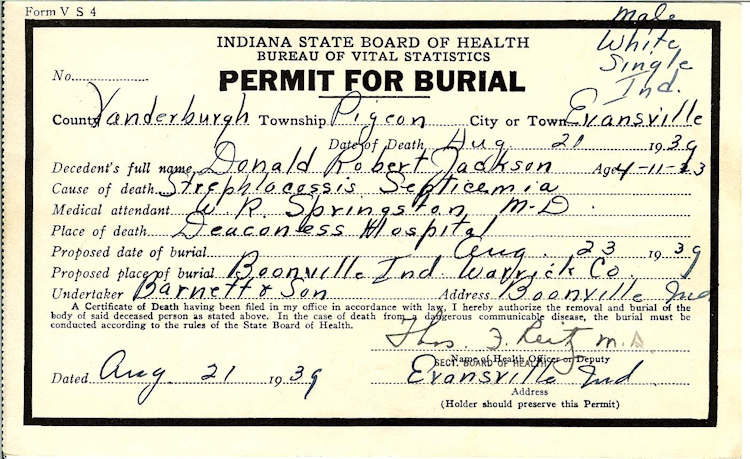 Form V S 4
Male
White
Single
Ind.
INDIANA STATE BOARD OF HEALTH
BUREAU OF VITAL STATISTICS
No.
PERMIT FOR BURIAL
County Vanderburgh Township Pigeon City or Town Evansville
Date of Death Aug 21 1939
Decedent's full name Donald Robert Jackson Age 4-11-23
Cause of death Strephlocossis Septicemia
Medical attendant W. R. Springston M-D.
Place of death Deaconless Hospital
Proposed date of burial Aug. 23 1939
Proposed place of burial Boonville Ind Warrick Co.
Undertaker Barnett & Son Address Boonville Ind
A Certificate of Death having been filed in my office in accordance with law, I hereby authorize the removal and burial of the
body of said deceased person as stated above. In the case of death from a dangerous communicable disease, the burial must be
conducted according to the rules of the State Board of Health.
Thos. J. Reitz M.D.
Name of Health Officer or Deputy
SECT. BOARD OF HEALTH
Dated Aug. 21 1939 Evansville Ind.
Address
(Holder should preserve this Permit)